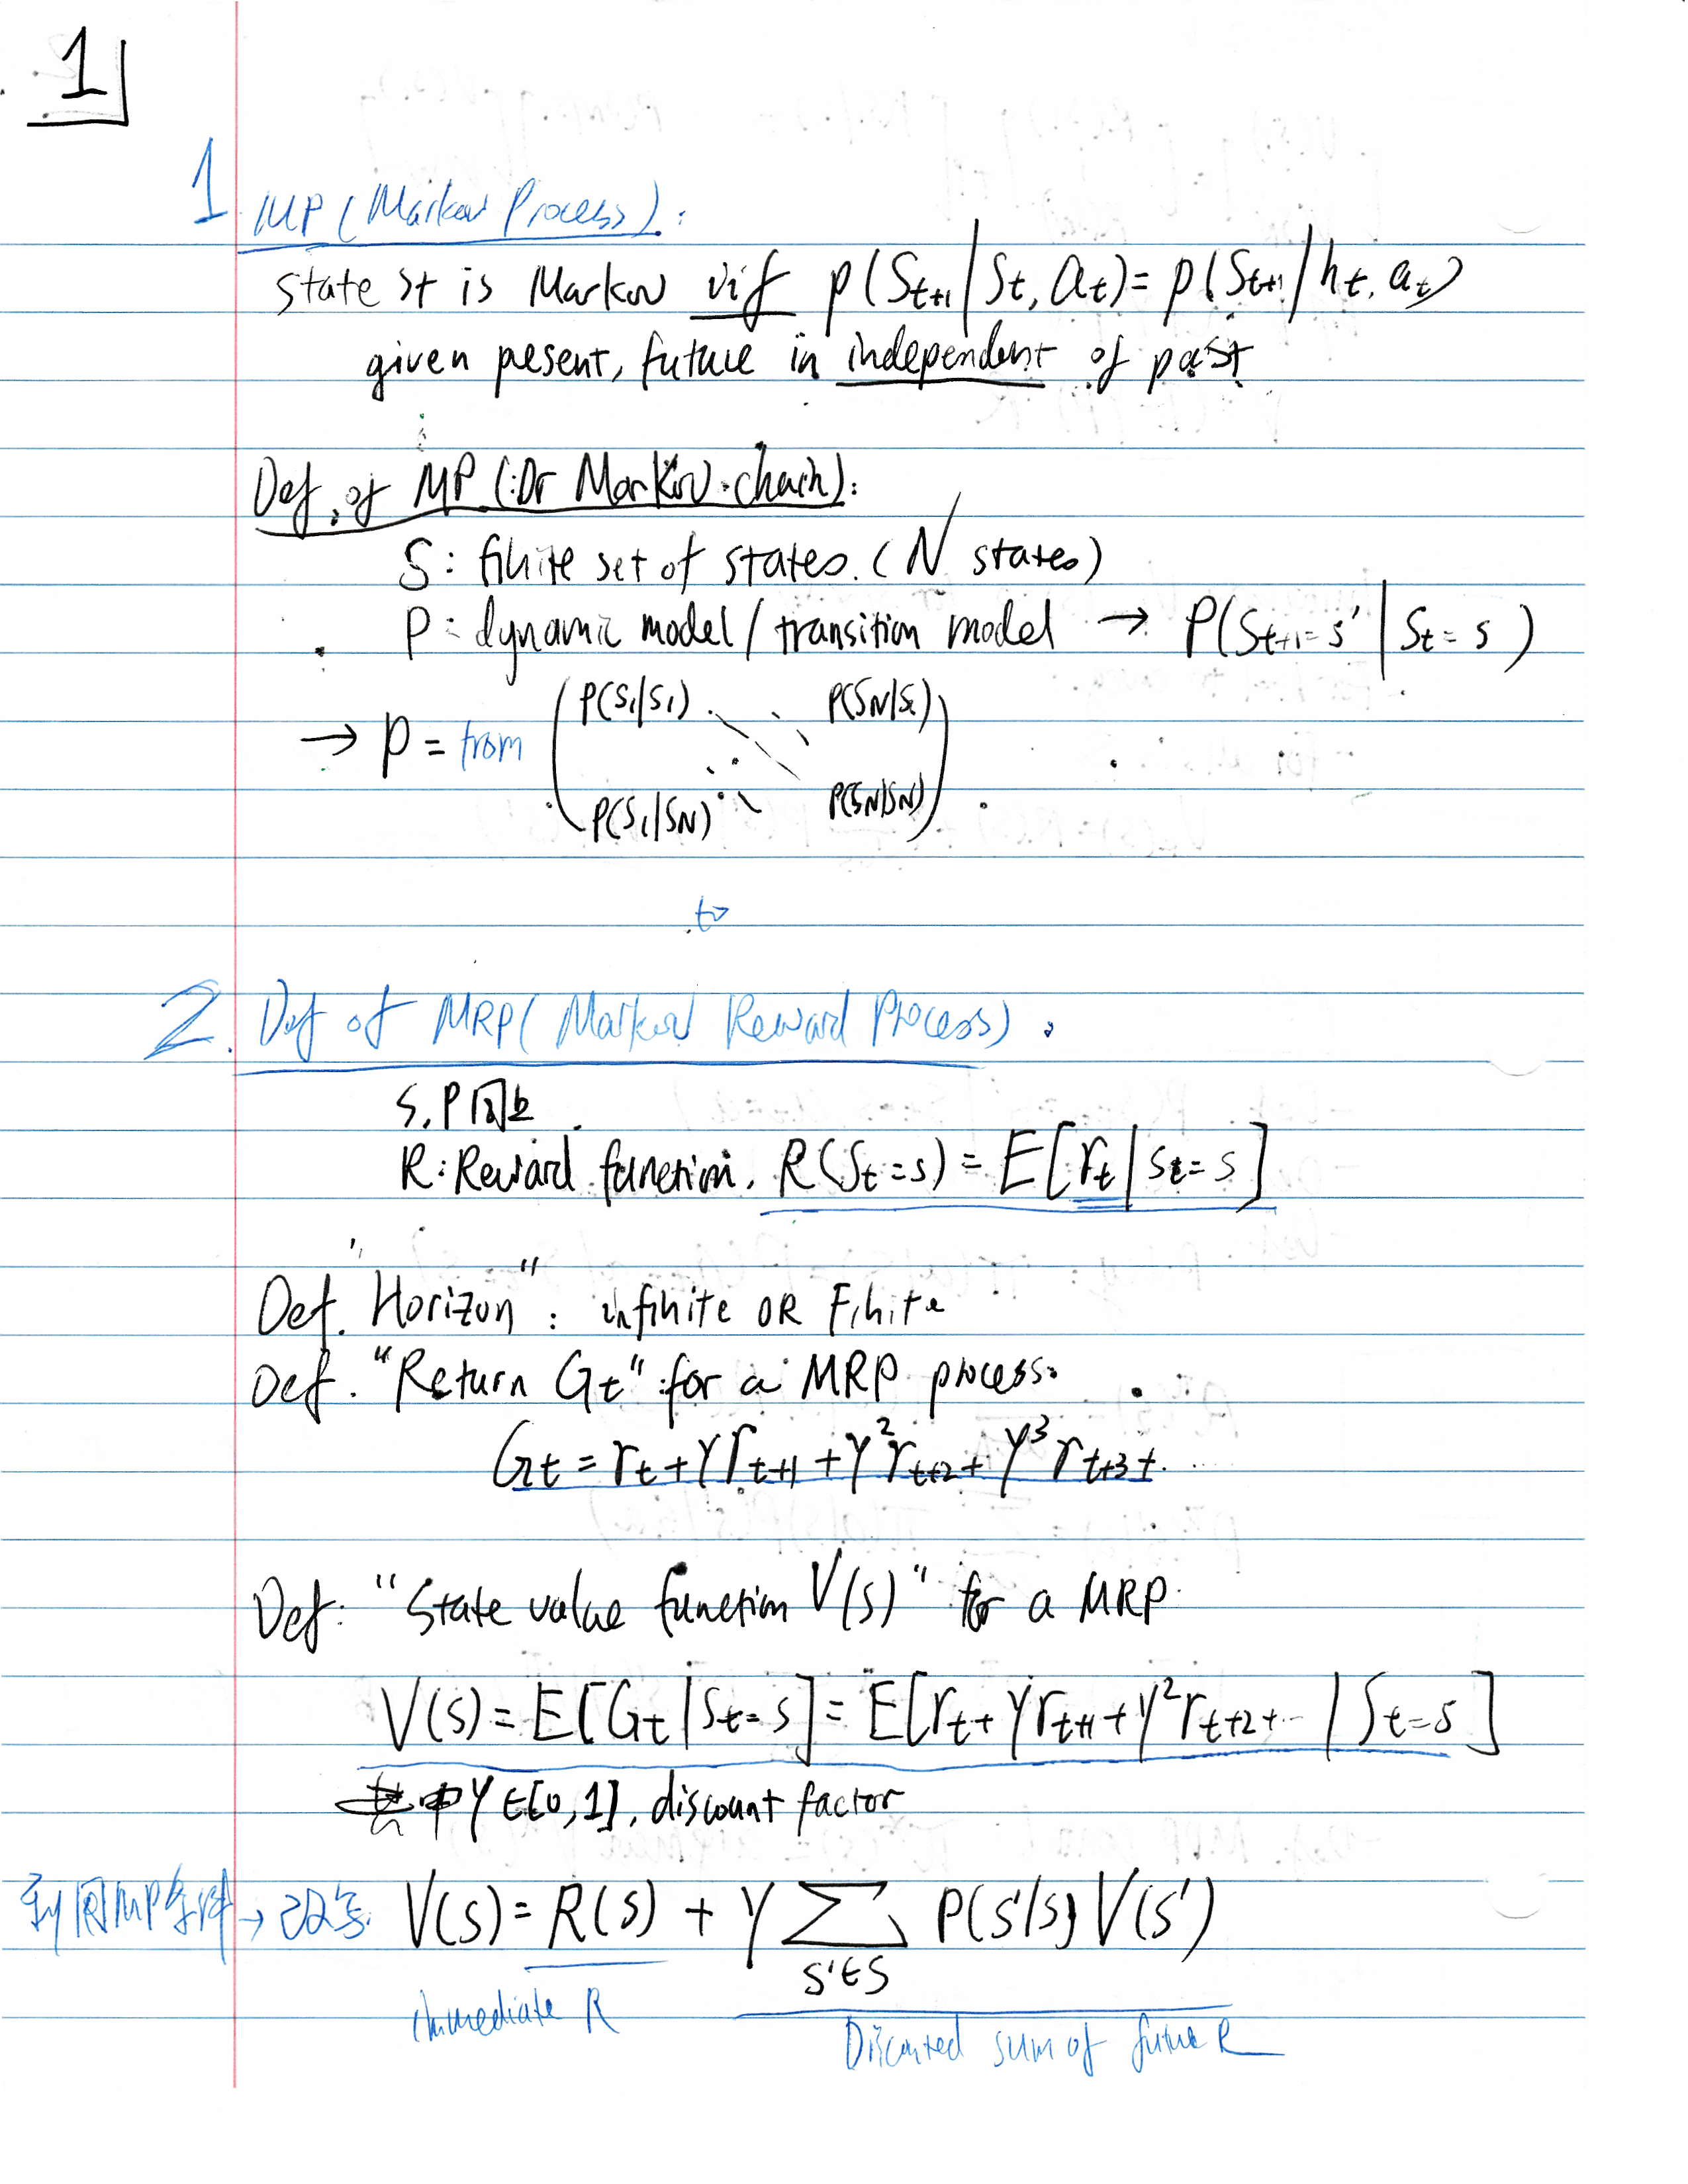 1
1. MP (Markov Process):
state St is Markov iif p(St+1|St, at) = p(St+1|ht, at)
given present, future in independent of past
Def. of MP (Or Markov chain):
S: finite set of states. (N states)
P: dynamic model / transition model → P(St+1=s' | St=s)
→ P = from ( P(S1|S1) ⋱ P(SN|S1)
P(S1|SN) P(SN|SN) )
to
2. Def of MRP (Markov Reward Process):
S, P同上
R: Reward function. R(St=s) = E[rt | St=s]
Def. "Horizon": infinite OR Finite
Def. "Return Gt" for a MRP process.
Gt = rt + γrt+1 + γ²rt+2 + γ³rt+3 + ..
Def: "State value function V(s)" for a MRP
V(s) = E[Gt | St=s] = E[rt + γrt+1 + γ²rt+2 + ... | St=s]
其中 γ∈[0,1], discount factor
利用MP条件 → 改写 V(s) = R(s) + γ ∑ P(s'|s) V(s')
s'∈S
immediate R
Discounted sum of future R